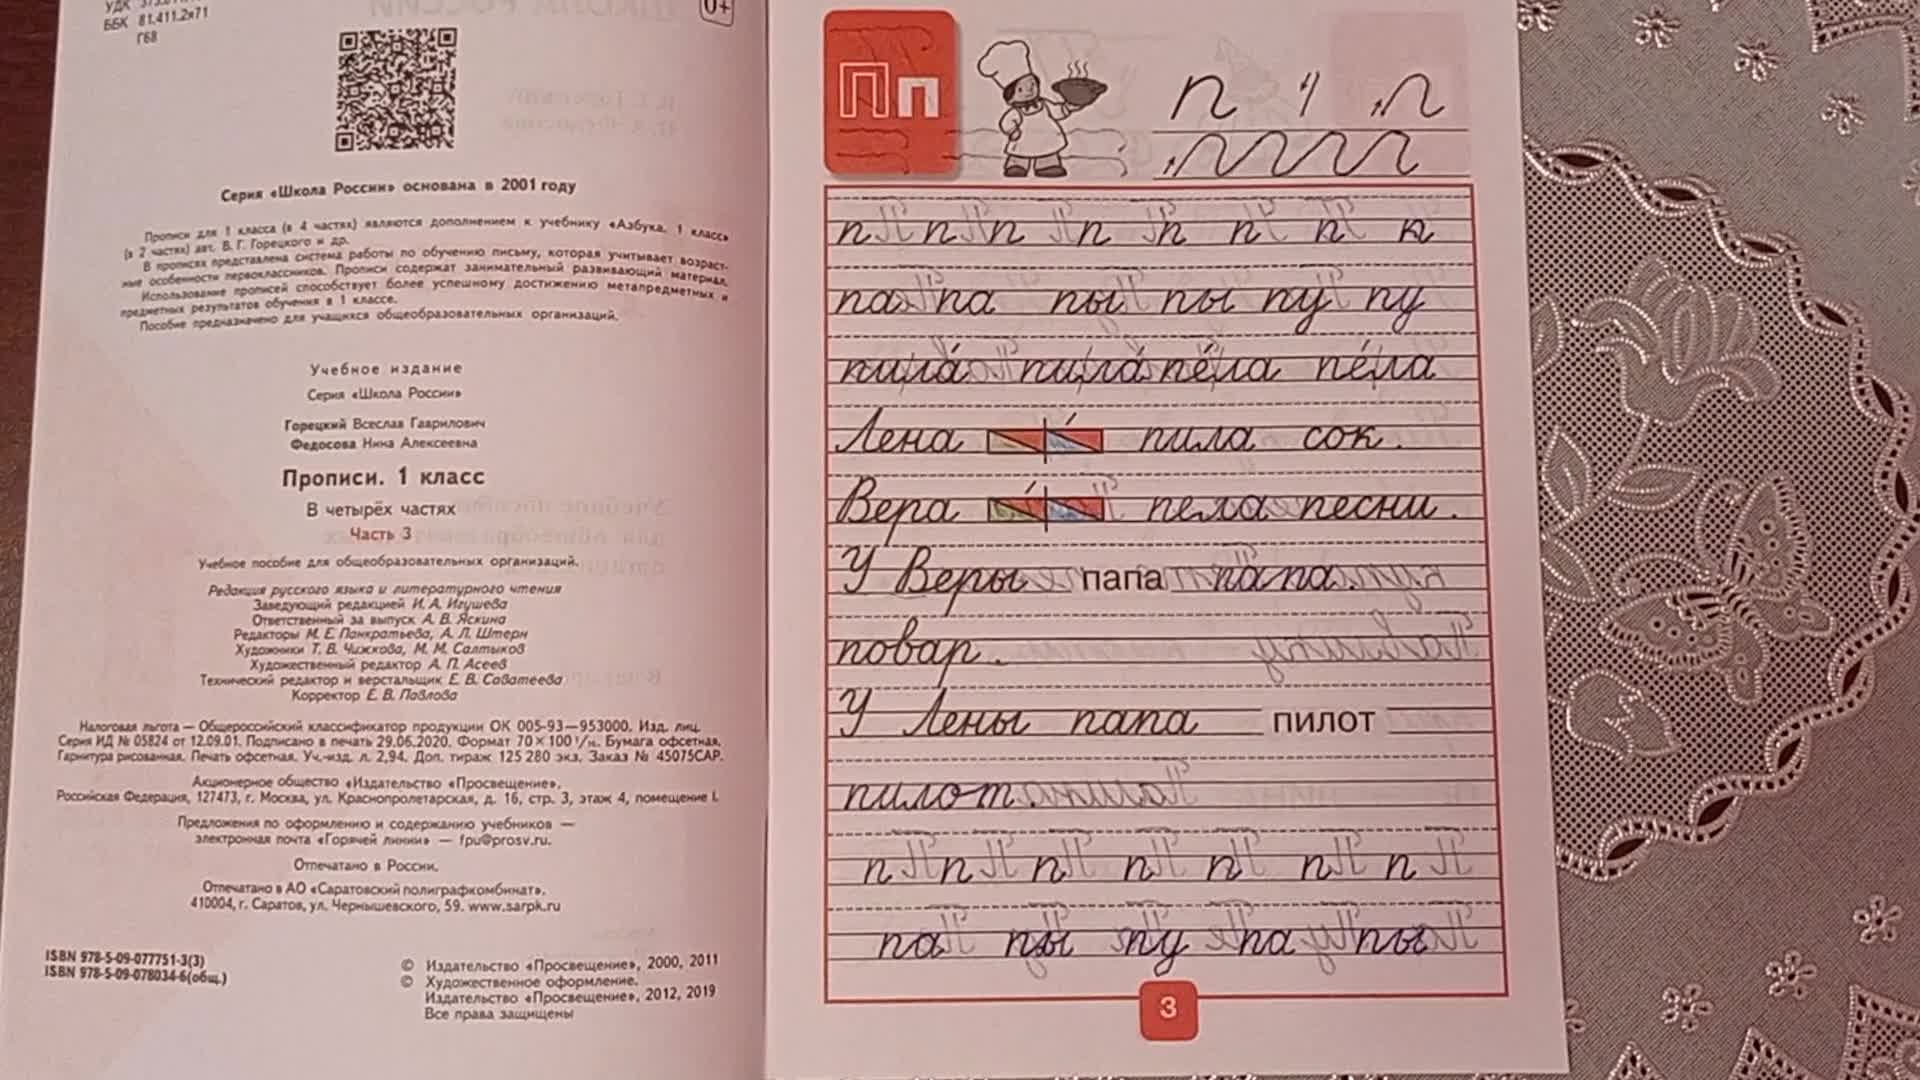 ББК 81.411.2я71
Г68
0+
Серия «Школа России» основана в 2001 году
Прописи для 1 класса (в 4 частях) являются дополнением к учебнику «Азбука. 1 класс»
(в 2 частях) авт. В. Г. Горецкого и др.
В прописях представлена система работы по обучению письму, которая учитывает возраст-
ные особенности первоклассников. Прописи содержат занимательный развивающий материал.
Использование прописей способствует более успешному достижению метапредметных и
предметных результатов обучения в 1 классе.
Пособие предназначено для учащихся общеобразовательных организаций.
Учебное издание
Серия «Школа России»
Горецкий Всеслав Гаврилович
Федосова Нина Алексеевна
Прописи. 1 класс
В четырёх частях
Часть 3
Учебное пособие для общеобразовательных организаций.
Редакция русского языка и литературного чтения
Заведующий редакцией И. А. Игушева
Ответственный за выпуск А. В. Яскина
Редакторы М. Е. Панкратьева, А. Л. Штерн
Художники Т. В. Чижкова, М. М. Салтыков
Художественный редактор А. П. Асеев
Технический редактор и верстальщик Е. В. Саватеева
Корректор Е. В. Павлова
Налоговая льгота — Общероссийский классификатор продукции ОК 005-93—953000. Изд. лиц.
Серия ИД № 05824 от 12.09.01. Подписано в печать 29.06.2020. Формат 70×100 1/16. Бумага офсетная.
Гарнитура рисованная. Печать офсетная. Уч.-изд. л. 2,94. Доп. тираж 125 280 экз. Заказ № 45075САР.
Акционерное общество «Издательство «Просвещение».
Российская Федерация, 127473, г. Москва, ул. Краснопролетарская, д. 16, стр. 3, этаж 4, помещение I.
Предложения по оформлению и содержанию учебников —
электронная почта «Горячей линии» — fpu@prosv.ru.
Отпечатано в России.
Отпечатано в АО «Саратовский полиграфкомбинат».
410004, г. Саратов, ул. Чернышевского, 59. www.sarpk.ru
ISBN 978-5-09-077751-3(3)
ISBN 978-5-09-078034-6(общ.)
© Издательство «Просвещение», 2000, 2011
© Художественное оформление.
Издательство «Просвещение», 2012, 2019
Все права защищены
Пп
п п п п п п п п
па па пы пы пу пу
пила́ пила́ пе́ла пе́ла
Лена пила сок.
Вера пела песни.
У Веры папа папа
повар.
У Лены папа пилот
пилот.
п п п п п п п
па пы пу па пы
3